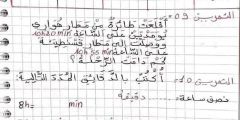 التمرين 09:
أقلعت طائرة من مطار هواري
بومدين على الساعة 10h20min
ووصلت إلى مطار قسنطينة
على الساعة 10h55min
كم دامت الرحلة؟
التمرين 10: أكتب بالدقائق المدد التالية:
نصف ساعة: دقيقة
8h= min